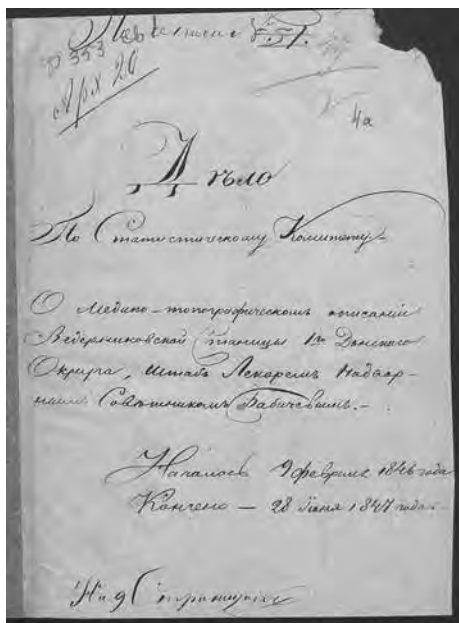 № 51.
Р 353
Арх 20
4а
Дѣло
По Статистическому Комитету
О Медико-топографическомъ описаніи
Ведерниковской Станицы 1го Донскаго
Округа, Штабъ Лекаремъ Надвор-
нымъ Совѣтникомъ Бабичевымъ.-
Началось 9 февраля 1846 года
Кончено — 28 Іюня 1847 года.
На 9 страницахъ